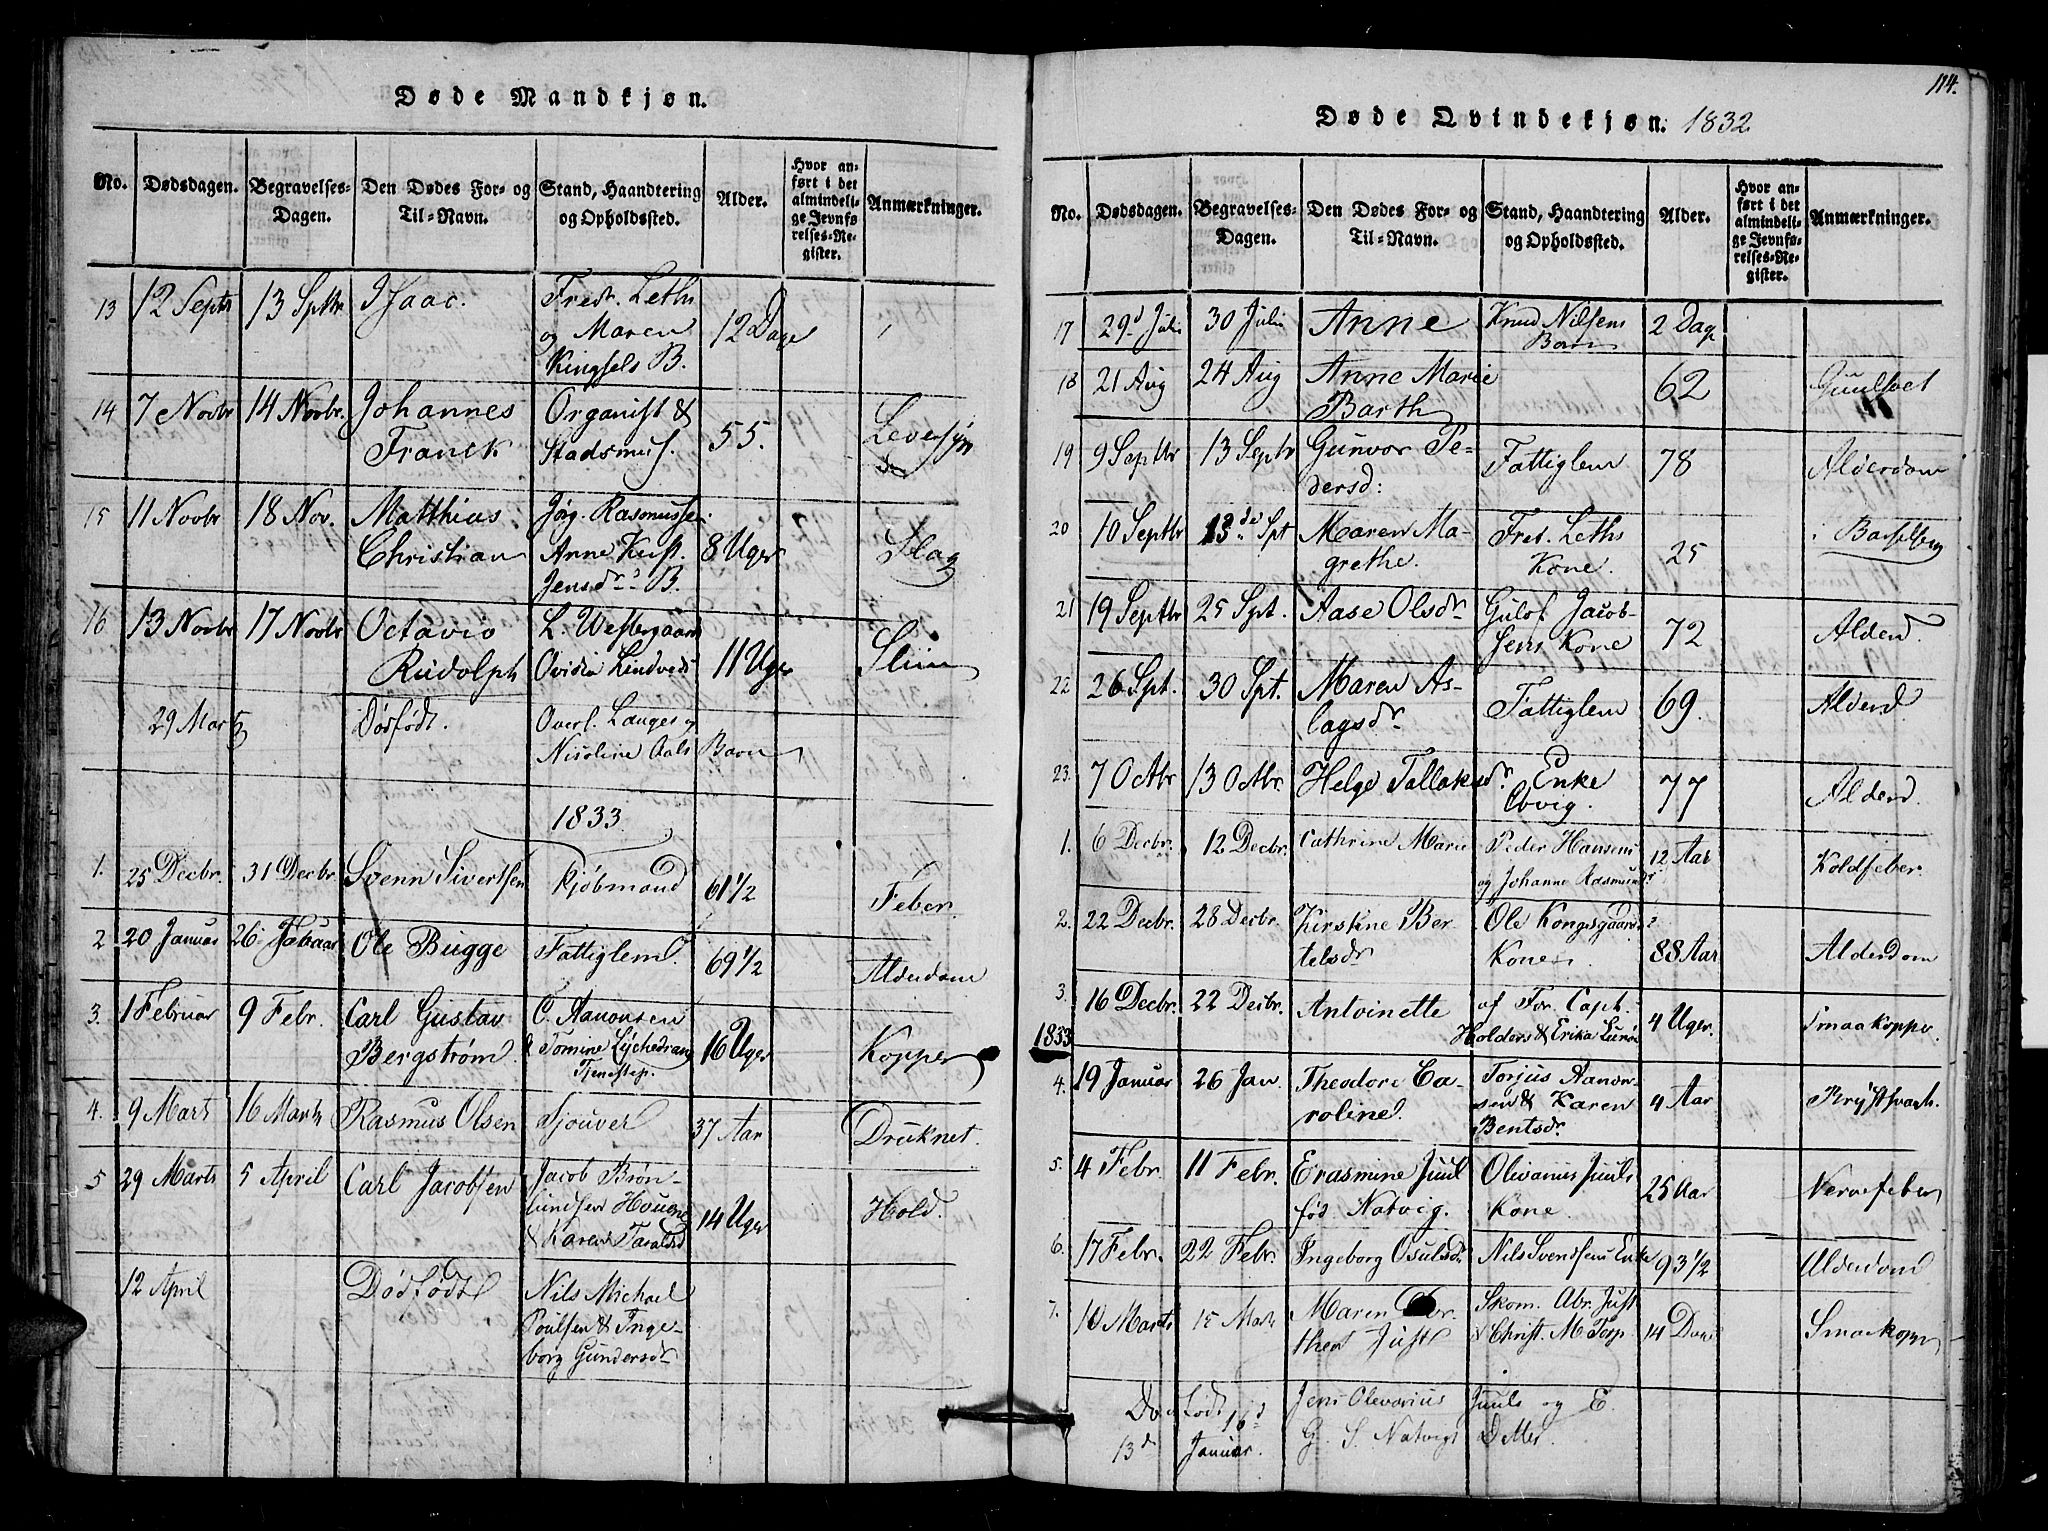 Døde Mandkjøn.
No. Dødsdagen. Begravelses-Dagen. Den Dødes For- og Til-Navn. Stand, Haandtering og Opholdssted. Alder. Hvor anført i det almindelige Jevnførelses-Register. Anmærkninger.
13 12 Septr 13 Sptbr Isaac. Fredr. Leths 12 Dage
og Maren
Kingsels B.
14 7 Novbr 14 Novbr. Johannes Organist & 55.
Franck Stadsmus.
15 11 Novbr 18 Nov. Matthius Jørg. Rasmussen 8 Uger Slag
Christian Anne Kirst.
Jensdr B.
16 13 Novbr 17 Novbr Octavio L. Westergaard 11 Uger Sliim
Rudolph Ovidia Lindveds
29 Marts Dødfødt. Overl. Langes og
Nicoline Aals Barn
1833.
1. 25 Decbr. 31 Decbr Svenn Sivertsen Kjøbmand 61 1/2 Feber.
2 20 Januar 26 Ole Bugge Fattiglem 69 1/2 Alderdom
3. 1 Februar 9 Febr. Carl Gustav C. Aanonsen 16 Uger Kopper
Bergstrøm. & Tomine
Tjenestep.
4. 9 Marts 16 Marts Rasmus Olsen Sjouver 37 Aar Druknet.
5 29 Marts 5 April Carl Jacobsen Jacob Brøn- 14 Uger Hold.
lundsen
& Karen Taraldsd
12 April Dødfødt Nils Michael
Poulsen & Inge-
borg Gundersdr
114.
Døde Qvindekjøn. 1832
No. Dødsdagen. Begravelses-Dagen. Den Dødes For- og Til-Navn. Stand, Haandtering og Opholdssted. Alder. Hvor anført i det almindelige Jevnførelses-Register. Anmærkninger.
17 29d Juli 30 Julii Anne Knud Nilsens 2 Dage
Barn
18 21 Aug 24 Aug Anne Marie 62 Guulsot
Barth
19 9 Septbr 13 Septr Gunvor Pe- Fattiglem 78 Alderdom
dersd:
20 10 Septbr 13de Spt Maren Ma- Fred. Leths 25 Barselseng
grethe. Kone.
21 19 Septbr 25 Spt. Aase Olsdr Gulof Jacob- 72 Alderd.
sens Kone
22 26 Spt. 30 Spt. Maren As- Fattiglem 69. Alderd
lagsdr
23. 7 Octbr 13 Octbr. Helge Tallaksdr. Enke 77 Alderd.
1. 6 Decbr. 12 Decbr. Cathrine Marie Peder Hansens 12 Aar Koldfeber.
og Johanne Rasmusd
2. 22 Decbr. 28 Decbr. Kirstine Ber- Ole Kongsgaards 88 Aar Alderdom
telsdr Kone
3. 16 Decbr. 22 Decbr. Antoinette af For. Capt. 4 Uger. Smaakopper
Holders & Erika
1833
4. 19 Januar 26 Jan. Theodore Ca- Torjus Aanon- 4 Aar Brystsvagh.
roline. sen & Karen
Bentsdr.
5. 4 Febr. 11 Febr. Erasmine Juul Olivarius Juuls 25 Aar Nervefeber
fød Natvig. Kone.
6. 17 Febr. 22 Febr. Ingeborg Osulsdr Nils Svendsens Enke 93 1/2 Alderdom
7. 10 Marts 15 Marts Maren Dor- Skom. Abr. Just 14 Dage Smaakopper
thea Just & Christ. M Terp
Dødfødt 16d Jens Olevarius Juuls og E.
13d Januar. G. S. Natvigs D Mer.